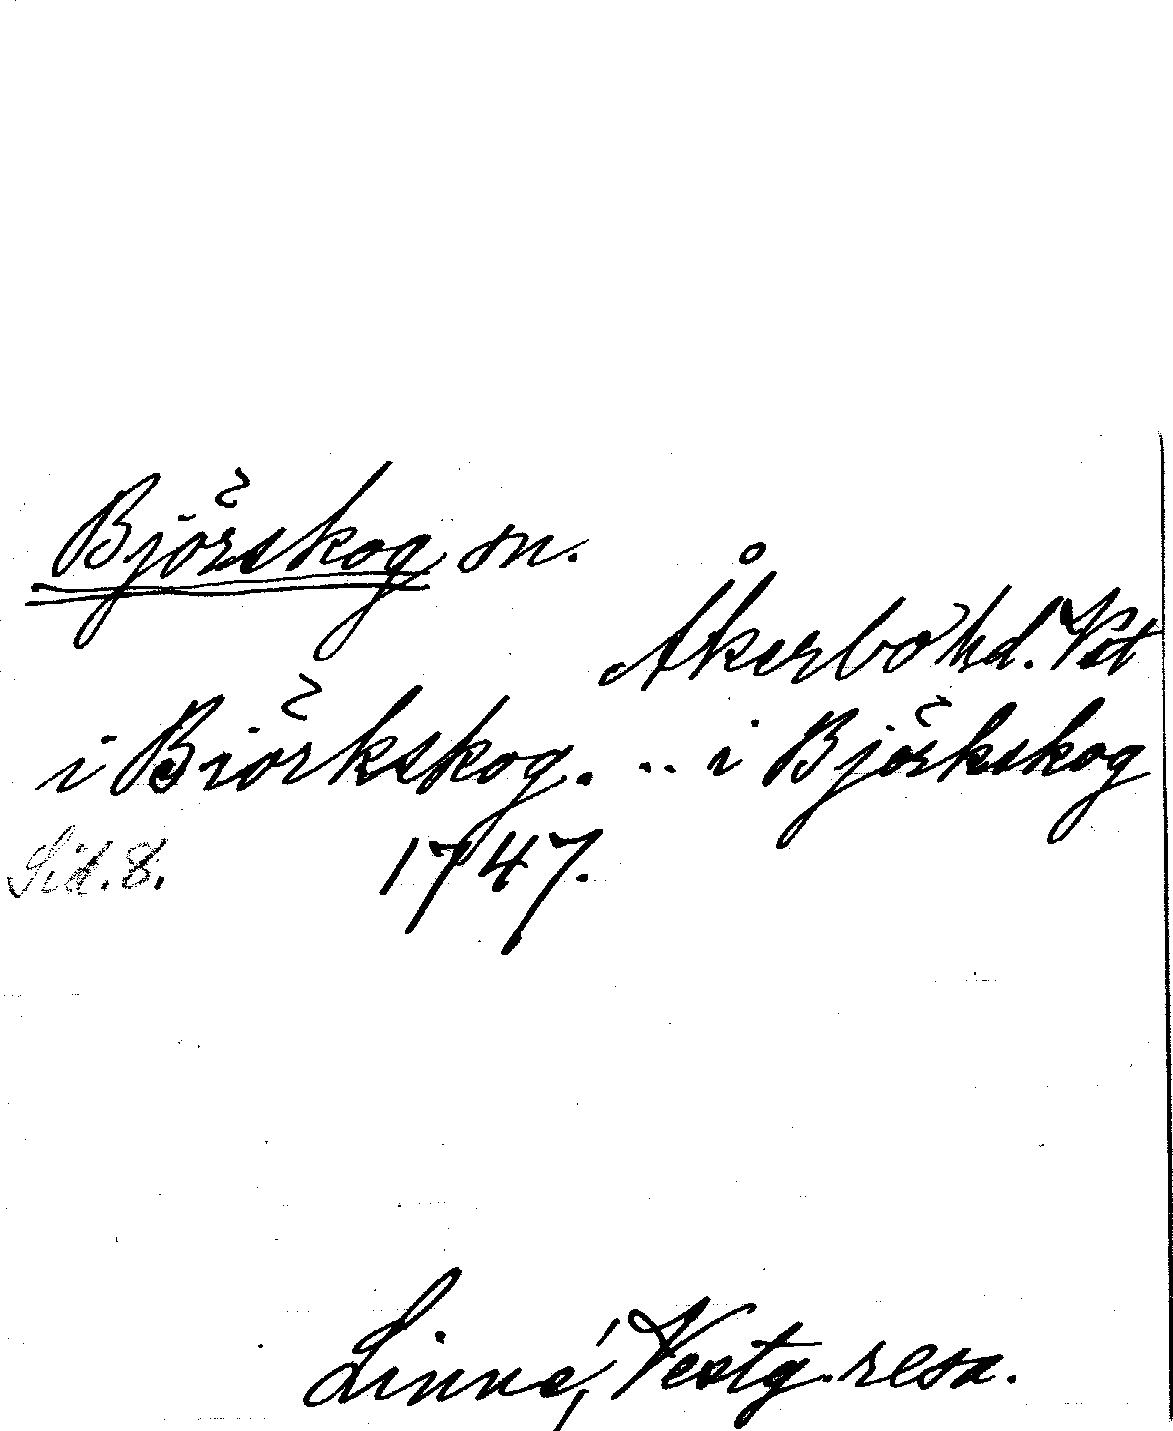 Björskog sn.
Åkerbo hd. Vst
i Biörkskog. ... i Björkskog
Sid. 8. 1747.
Linné, Vestg. resa.